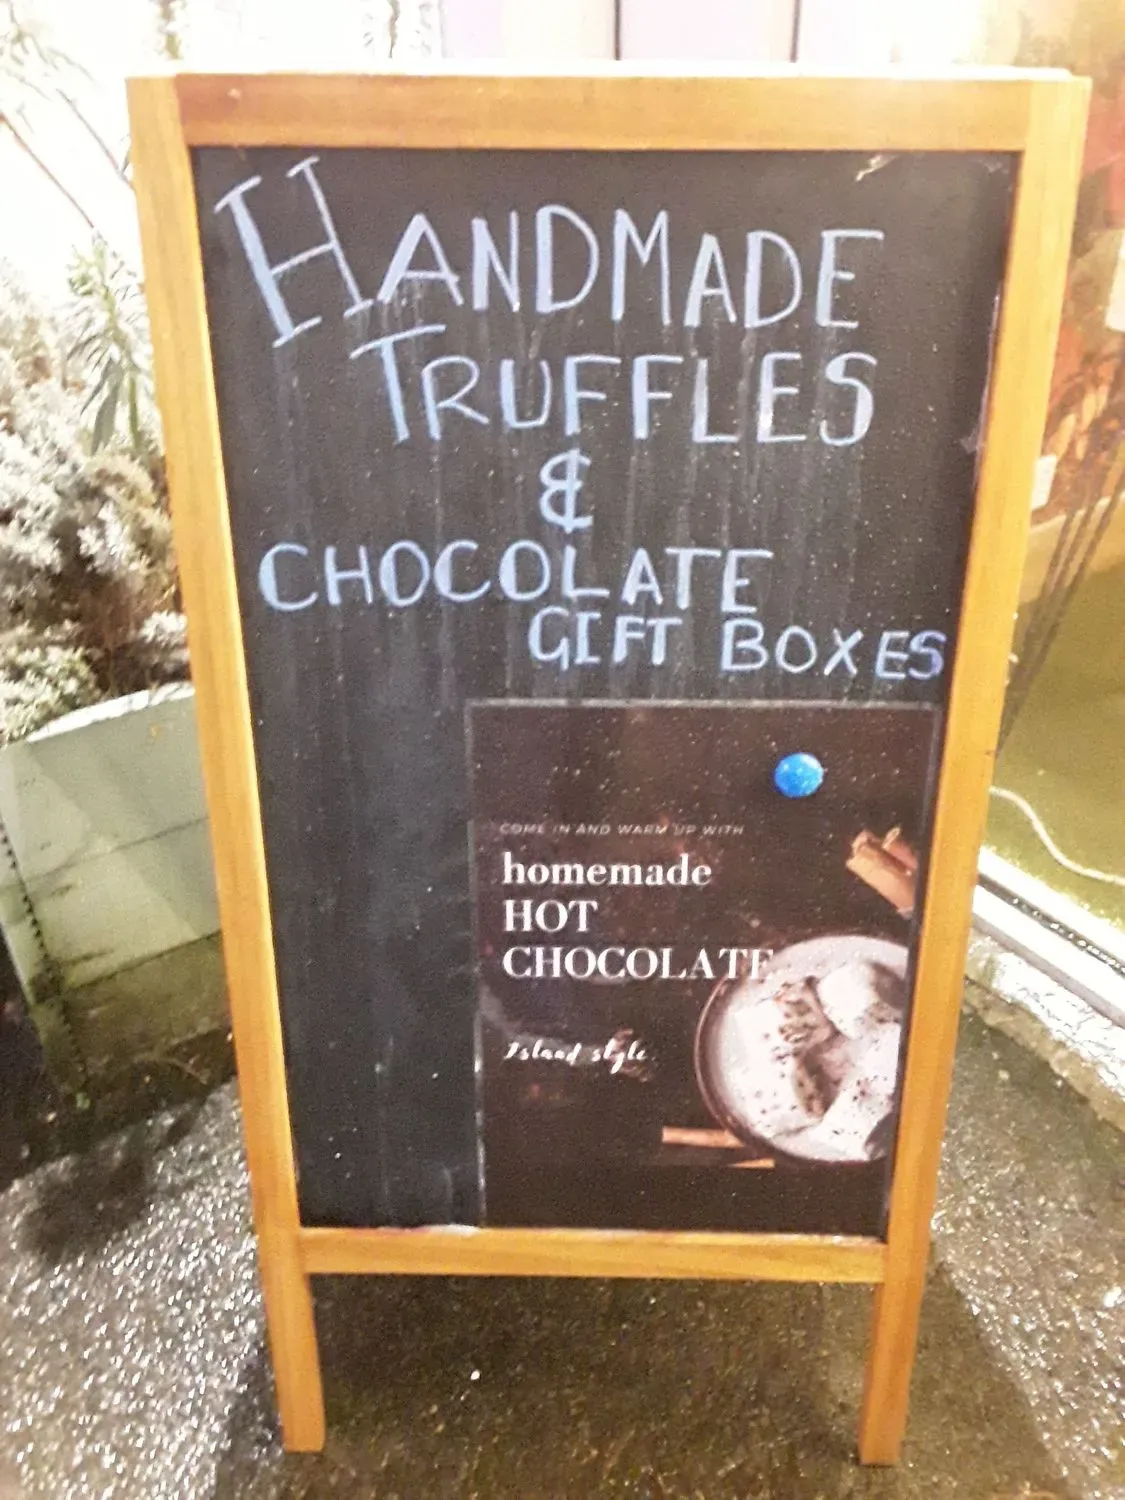 HANDMADE
TRUFFLES
&
CHOCOLATE
GIFT BOXES
COME IN AND WARM UP WITH
homemade
HOT
CHOCOLATE
Island style